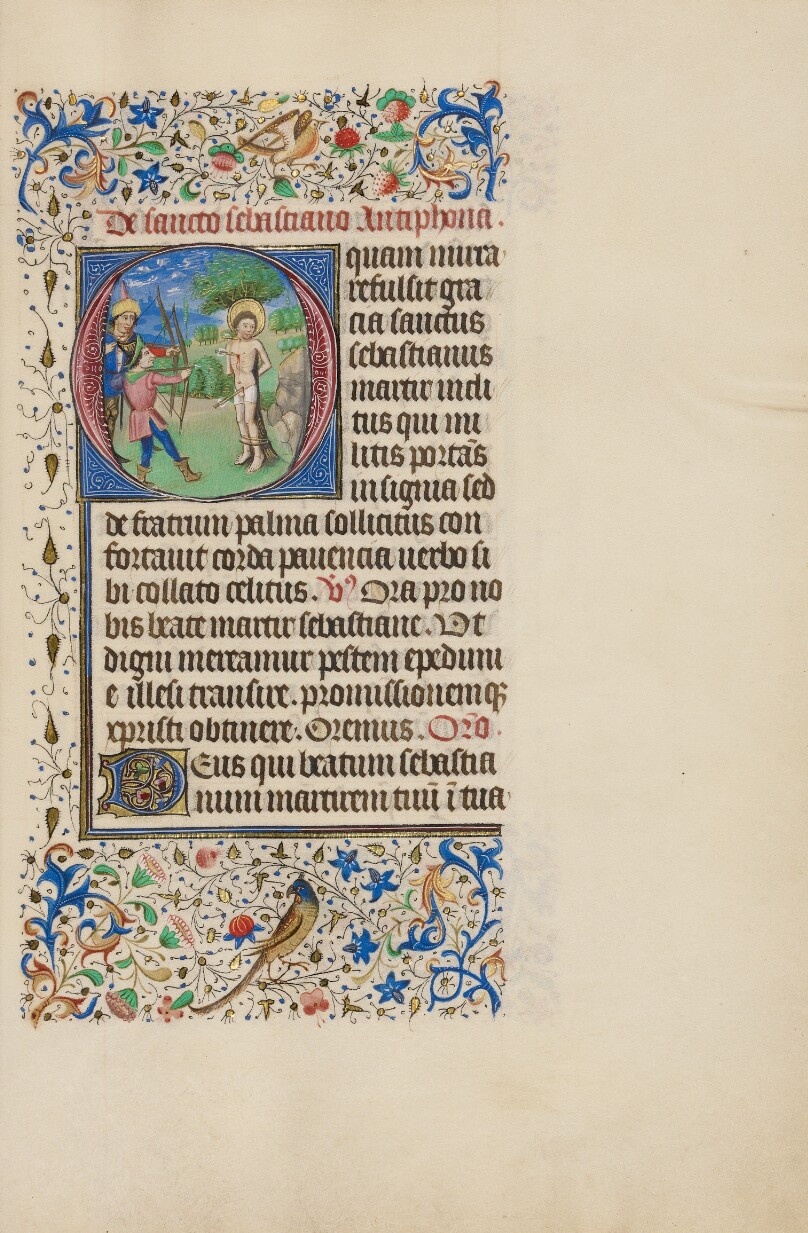 De sancto sebastiano Antiphona.
O quam mira
refulsit gra
cia sanctus
sebastianus
martir incli
tus qui mi
litis portās
insignia sed
de fratrum palma sollicitus con
fortauit corda pauencia uerbo si
bi collato celitus. V̄ꝰ Ora pro no
bis beate martir sebastiane. Vt
digni mereamur pestem epedimi
e illesi transire. promissionemqꝫ
xpristi obtinere. Oremus. Oro̅.
Deus qui beatum sebastia
num martirem tuū ī tua